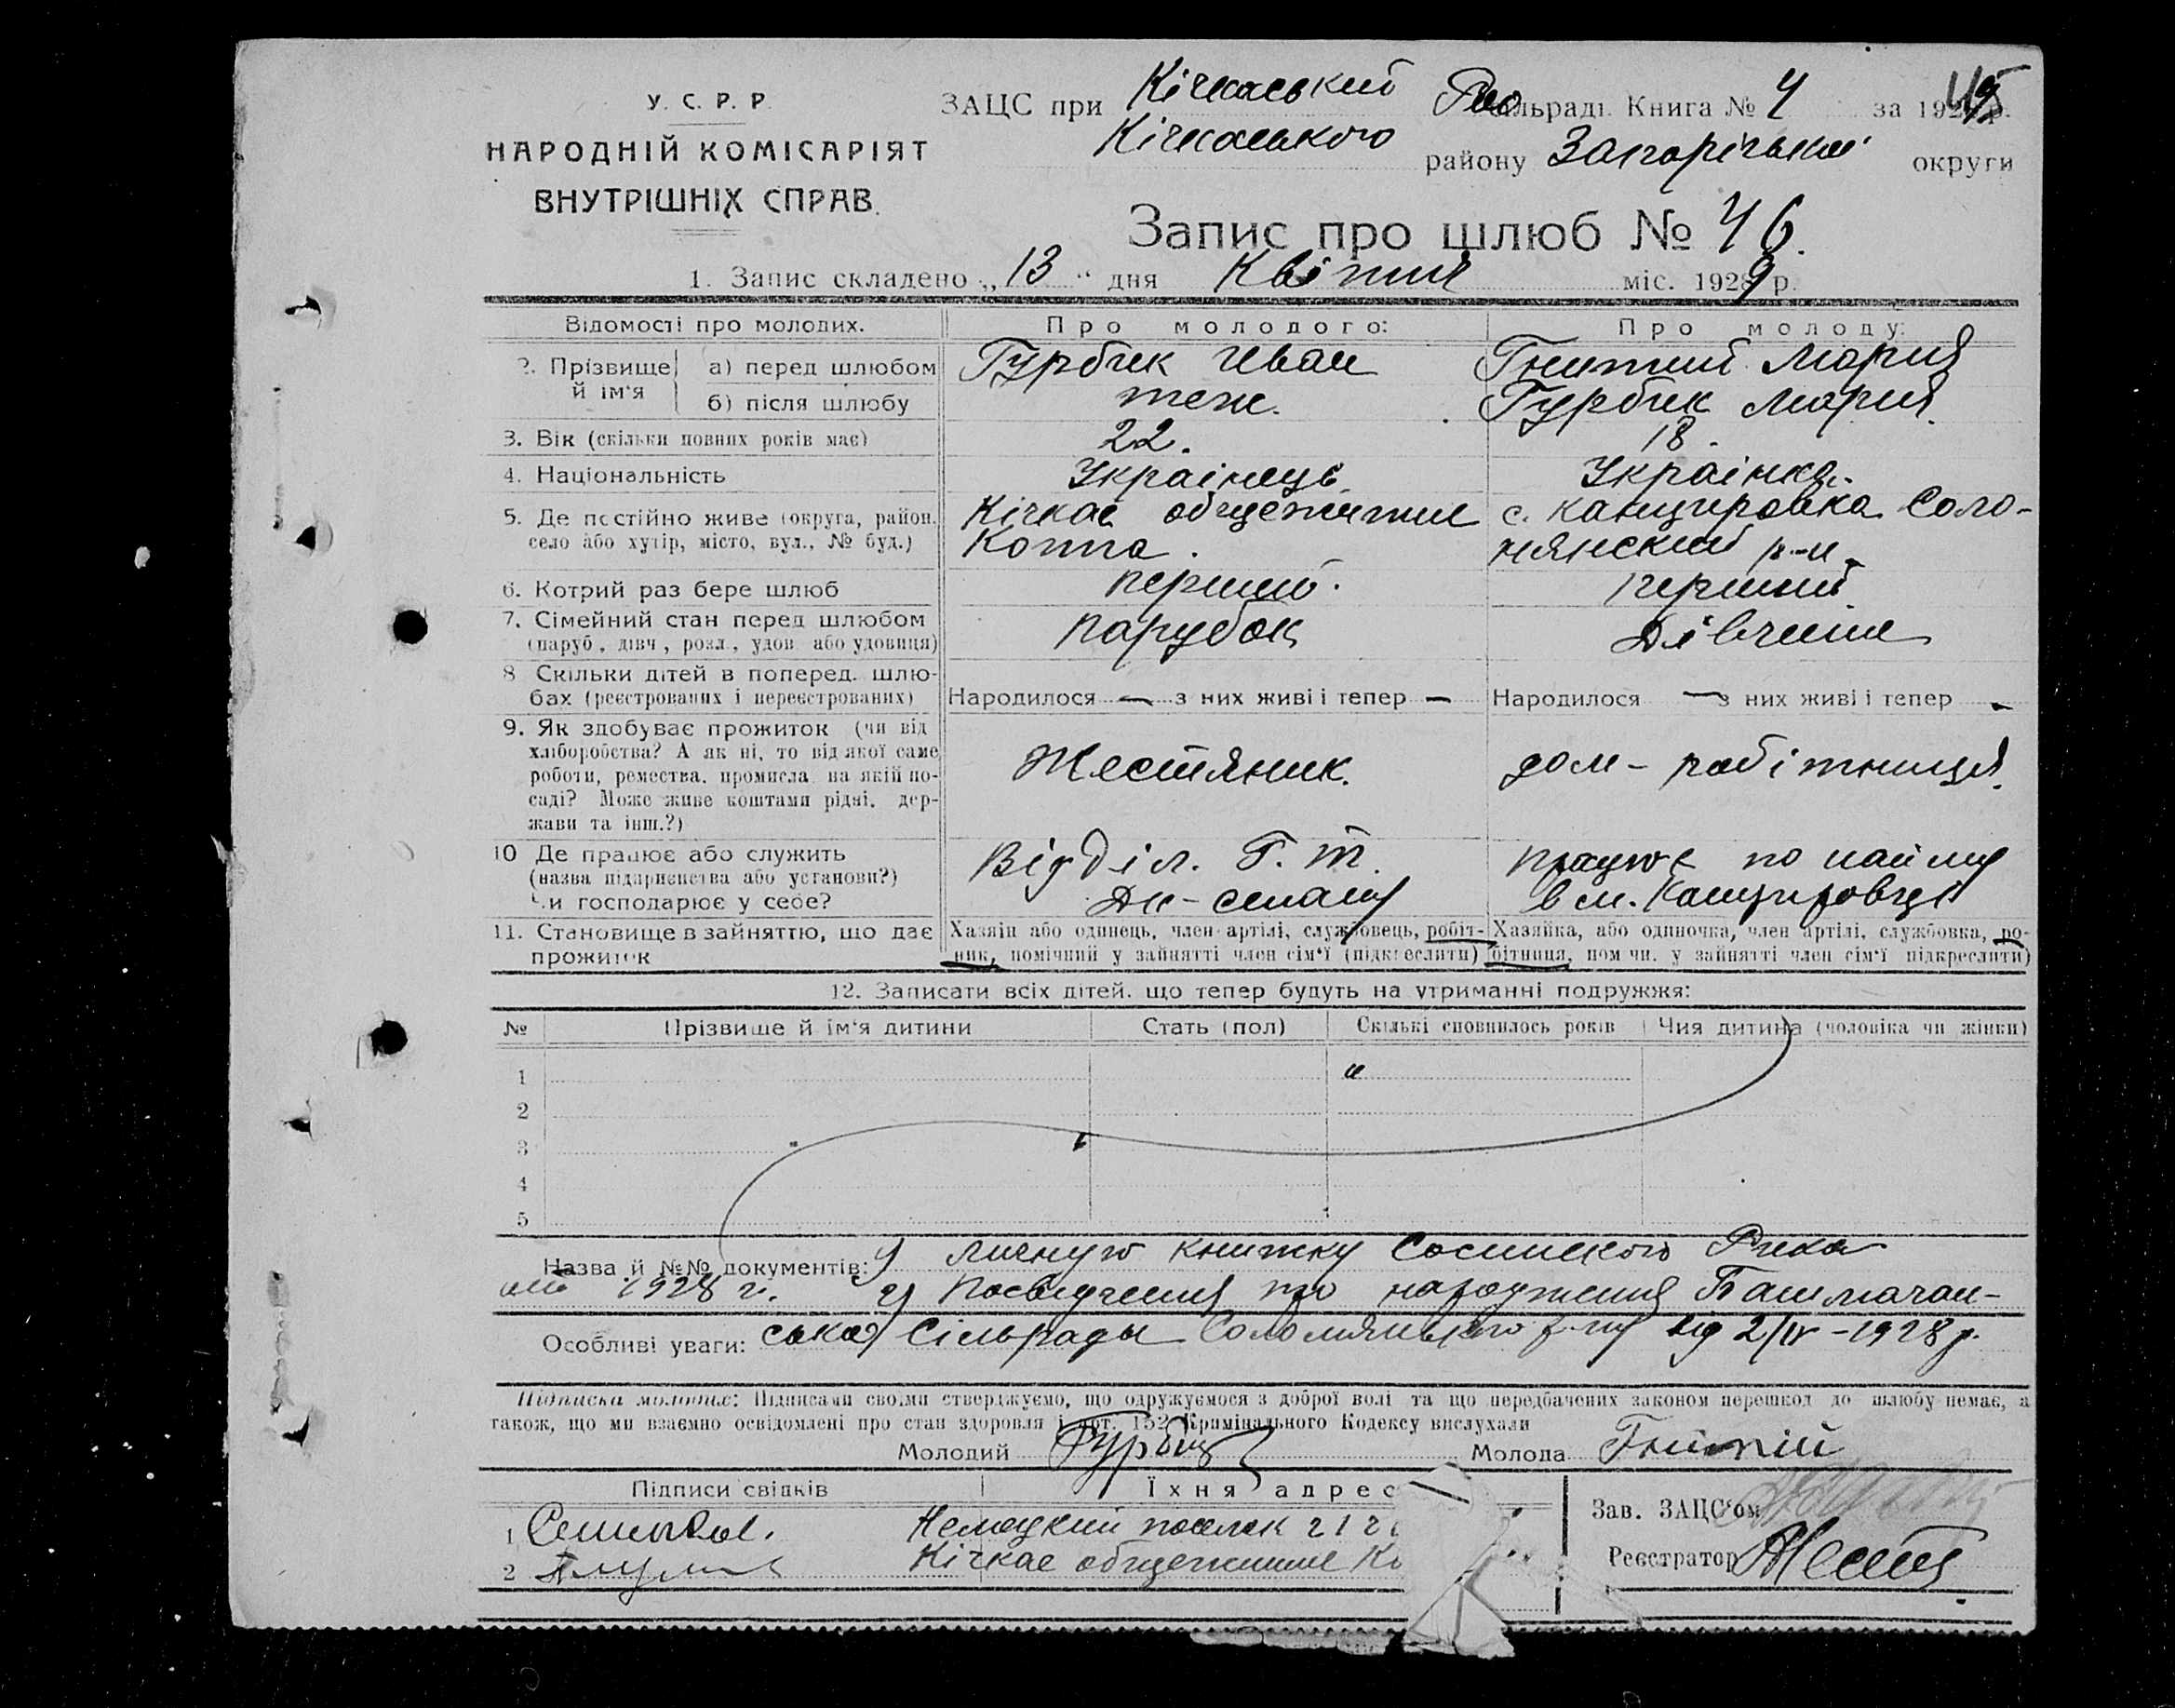 45
У. С. Р. Р.
НАРОДНІЙ КОМІСАРІЯТ
ВНУТРІШНІХ СПРАВ.
ЗАЦС при Кічкаський сільраді. Книга № 4 за 1929 р.
Кічкаського району Запорізької округи
Запис про шлюб № 46.
1. Запис складено „13“ дня Квітня міс. 1929 р.
Відомості про молодих. Про молодого: Про молоду:
2. Прізвище й ім'я а) перед шлюбом Гурбик Иван Гнитий Мария
б) після шлюбу теж. Гурбик Мария.
3. Вік (скільки повних років має) 22. 18.
4. Національність Українець Українка.
5. Де постійно живе (округа, район, Кічкас общежитие с. Канцировка Соло-
село або хутір, місто, вул., № буд.) Коппа. нянский р-н
6. Котрий раз бере шлюб перший. перший
7. Сімейний стан перед шлюбом парубок Дівчина
(паруб., дівч., розл., удов. або удовиця)
8 Скільки дітей в поперед. шлю-
бах (реєстрованих і нереєстрованих) Народилося — з них живі і тепер — Народилося — з них живі і тепер —
9. Як здобуває прожиток (чи від
хліборобства? А як ні, то від якої саме
роботи, ремества, промисла, на якій по- Жестяник. дом-робітниця.
саді? Може живе коштами рідні, дер-
жави та інш.?)
10 Де працює або служить Відділ. Г. Т. працює по найму
(назва підприємства або установи?)
Чи господарює у себе? Дн-стану в м. Канцировці
11. Становище в зайняттю, що дає Хазяїн або одинець, член артілі, службовець, робіт- Хазяйка, або одиночка, член артілі, службовка, ро-
прожиток ник, помічний у зайнятті член сім'ї (підкреслити) бітниця, пом чн. у зайнятті член сім'ї підкреслити)
12. Записати всіх дітей, що тепер будуть на утриманні подружжя:
№ Прізвище й ім'я дитини Стать (пол) Скількі сповнилось років Чия дитина (чоловіка чи жінки)
1
2
3
4
5
Назва й №№ документів: личную книжку Рика
1928 г. 2) Посвідчення про народження Башмачан-
Особливі уваги: ської Сільради Солонянського р-ну від 2/IV-1928 р.
Підписка молодих: Підписами своїми стверджуємо, що одружуємося з доброї волі та що передбачених законом перешкод до шлюбу немає, а
також, що ми взаємно освідомлені про стан здоровля і арт. 152 Кримінального Кодексу вислухали
Молодий Гурбик Молода Гнитий
Підписи свідків Їхня адрес
1 Немецкий поселок 212
2 Кічкас общежитие Ко
Зав. ЗАЦС'ом
Реєстратор